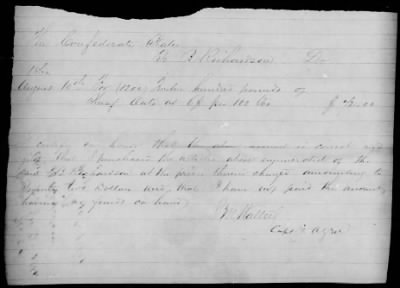 The Confederate States
To B Richardson Dr
August 16th For 1200 Twelve hundred pounds of
Sheaf Oats at 6$ per 100 lbs $72.00
I certify on honor that the above account is correct and
just, that I purchased the articles above enumerated of the
said B Richardson at the prices therein charged amounting to
Seventy two Dollars and that I have not paid the amount
having no funds on hand
Capt & AQM